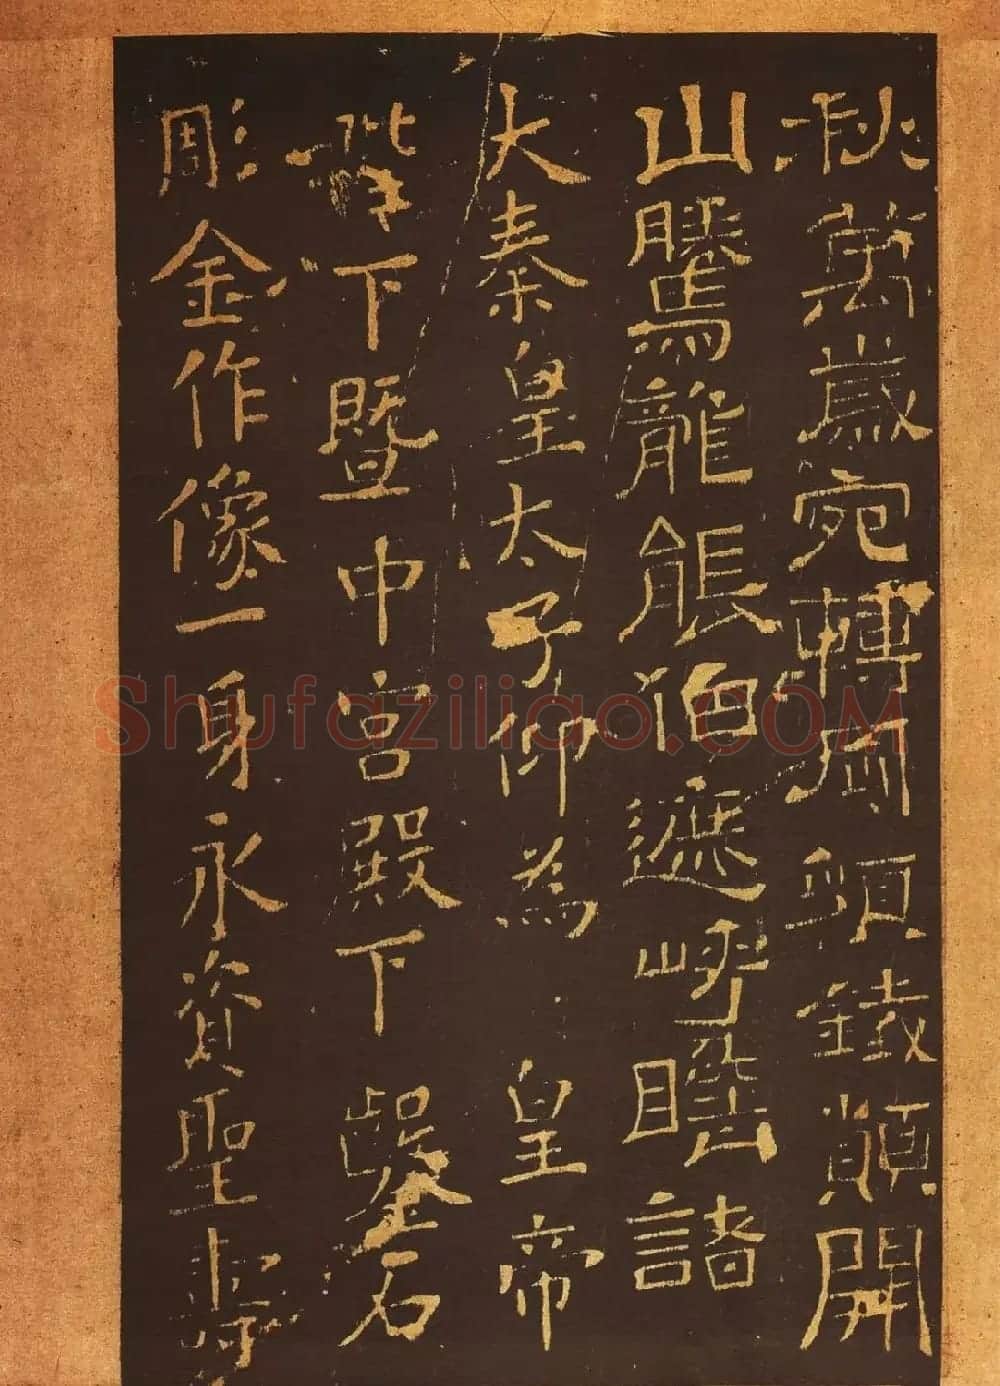 秋萬歲宛轉鐵顛開
山騰龍伯遞諸
大秦皇太子仰為 皇帝
陛下暨中宮殿下 鑿石
彫金作像一身永資聖壽
Shufaziliao.COM